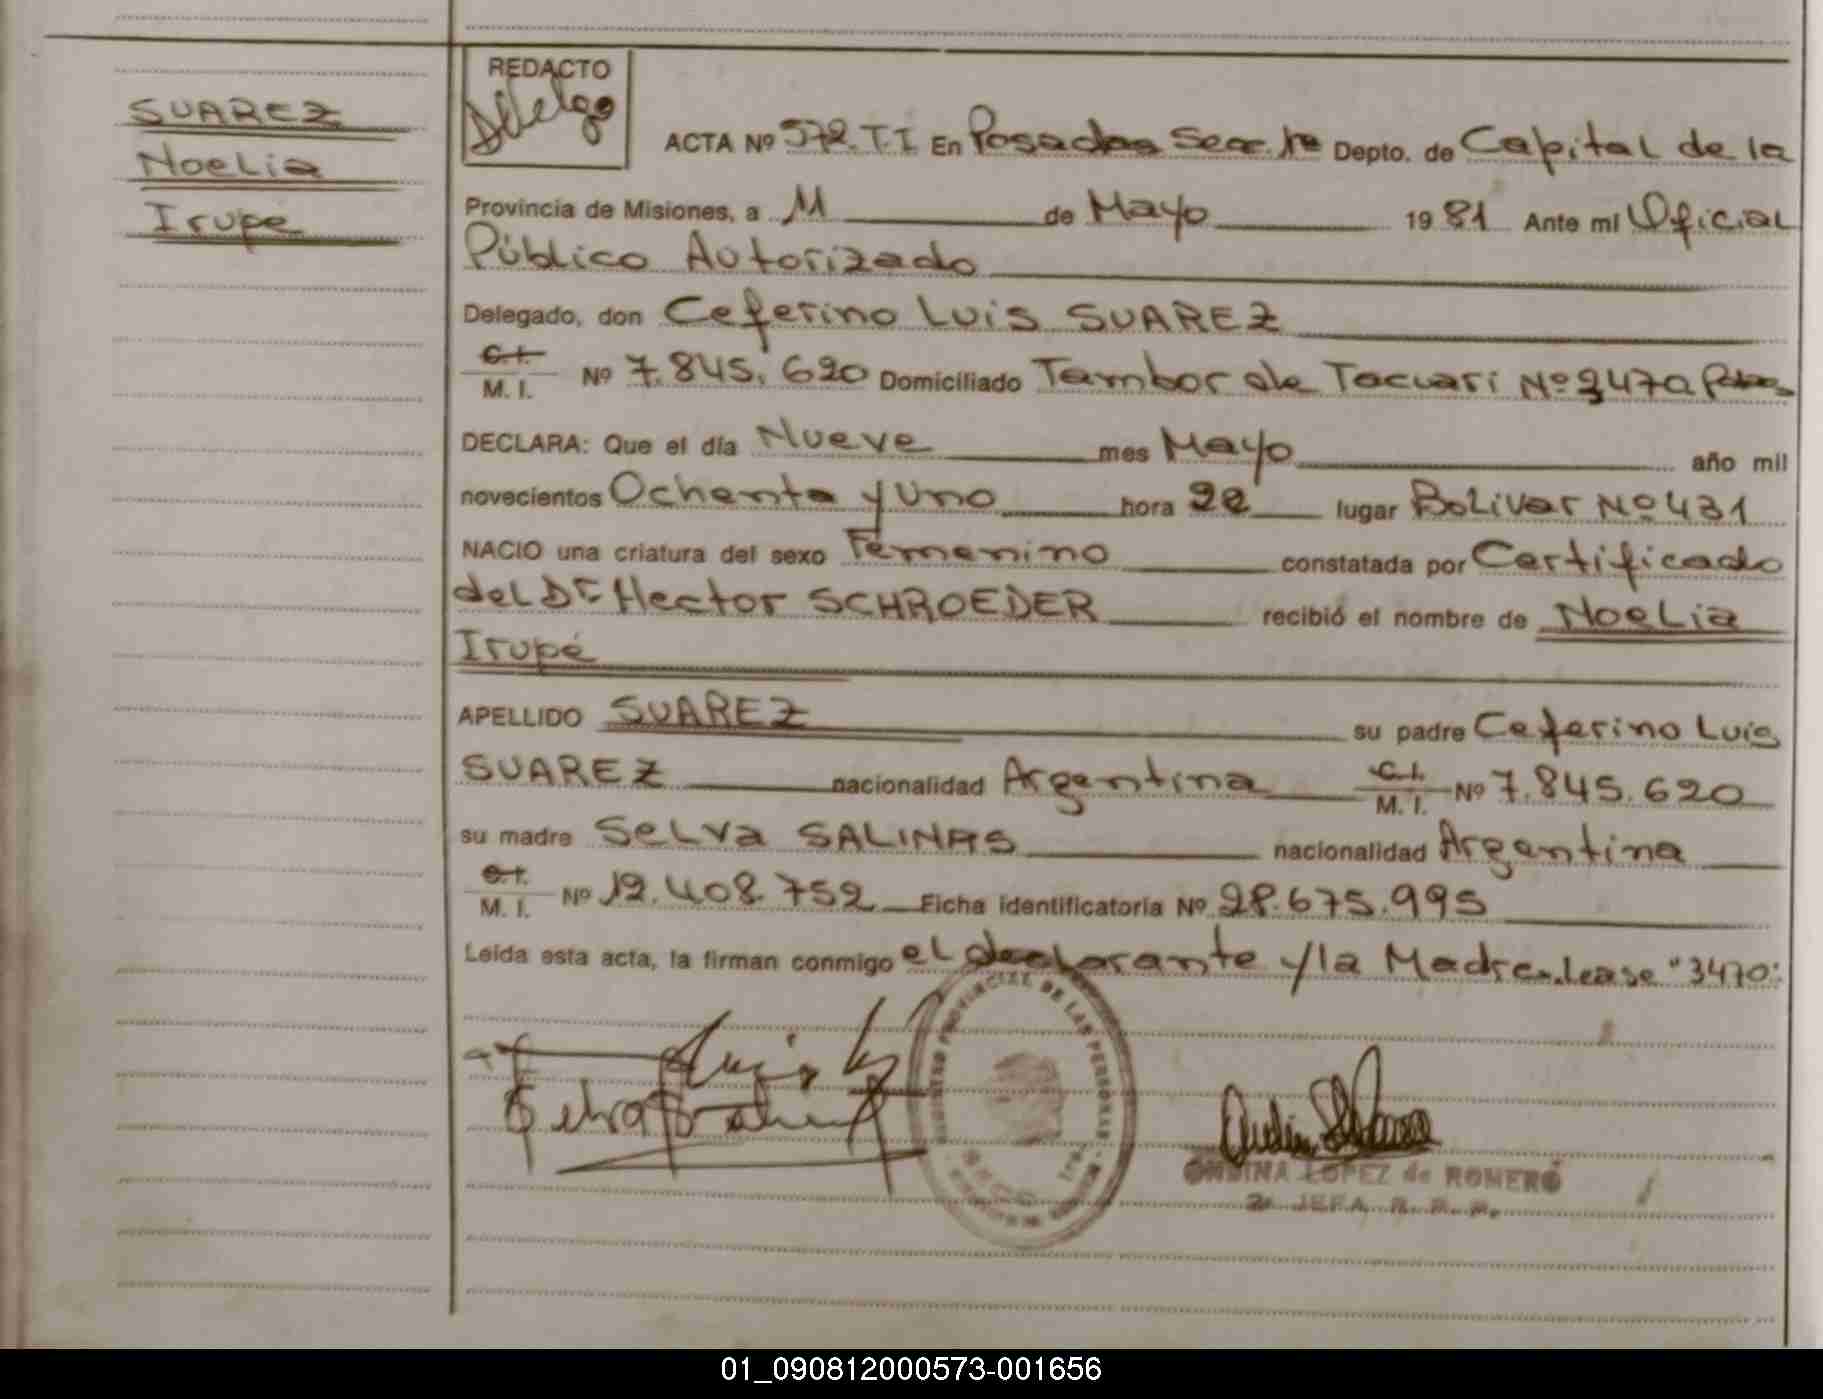 SUAREZ
Noelia
Irupe
REDACTO
Delego
ACTA Nº 572.T.I En Posadas Secc. 1ª Depto. de Capital de la
Provincia de Misiones, a 11 de Mayo 1981 Ante mí Oficial
Público Autorizado
Delegado, don Ceferino Luis SUAREZ
C.I.
M. I. Nº 7.845.620 Domiciliado Tambor de Tacuari Nº 3470 Pdas
DECLARA: Que el día Nueve mes Mayo año mil
novecientos Ochenta y Uno hora 22 lugar Bolivar Nº 431
NACIO una criatura del sexo Femenino constatada por Certificado
del Dr. Hector SCHROEDER recibió el nombre de Noelia
Irupé
APELLIDO SUAREZ su padre Ceferino Luis
SUAREZ nacionalidad Argentina C.I. M. I. Nº 7.845.620
su madre Selva SALINAS nacionalidad Argentina
C.I.
M. I. Nº 12.408.752 Ficha identificatoria Nº 28.675.995
Leída esta acta, la firman conmigo el declarante y la Madre. Lease "3470".
REGISTRO PROVINCIAL DE LAS PERSONAS
ONDINA LOPEZ de ROMERO
2ª JEFA R. P. P.
01_090812000573-001656